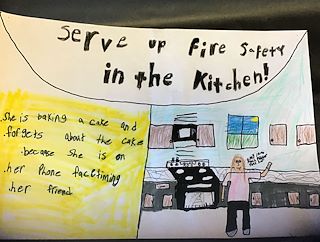 Serve up Fire Safety
in the Kitchen!
.she is baking a cake and
.forgets about the cake
.because she is on
.her Phone facetiming
.her friend